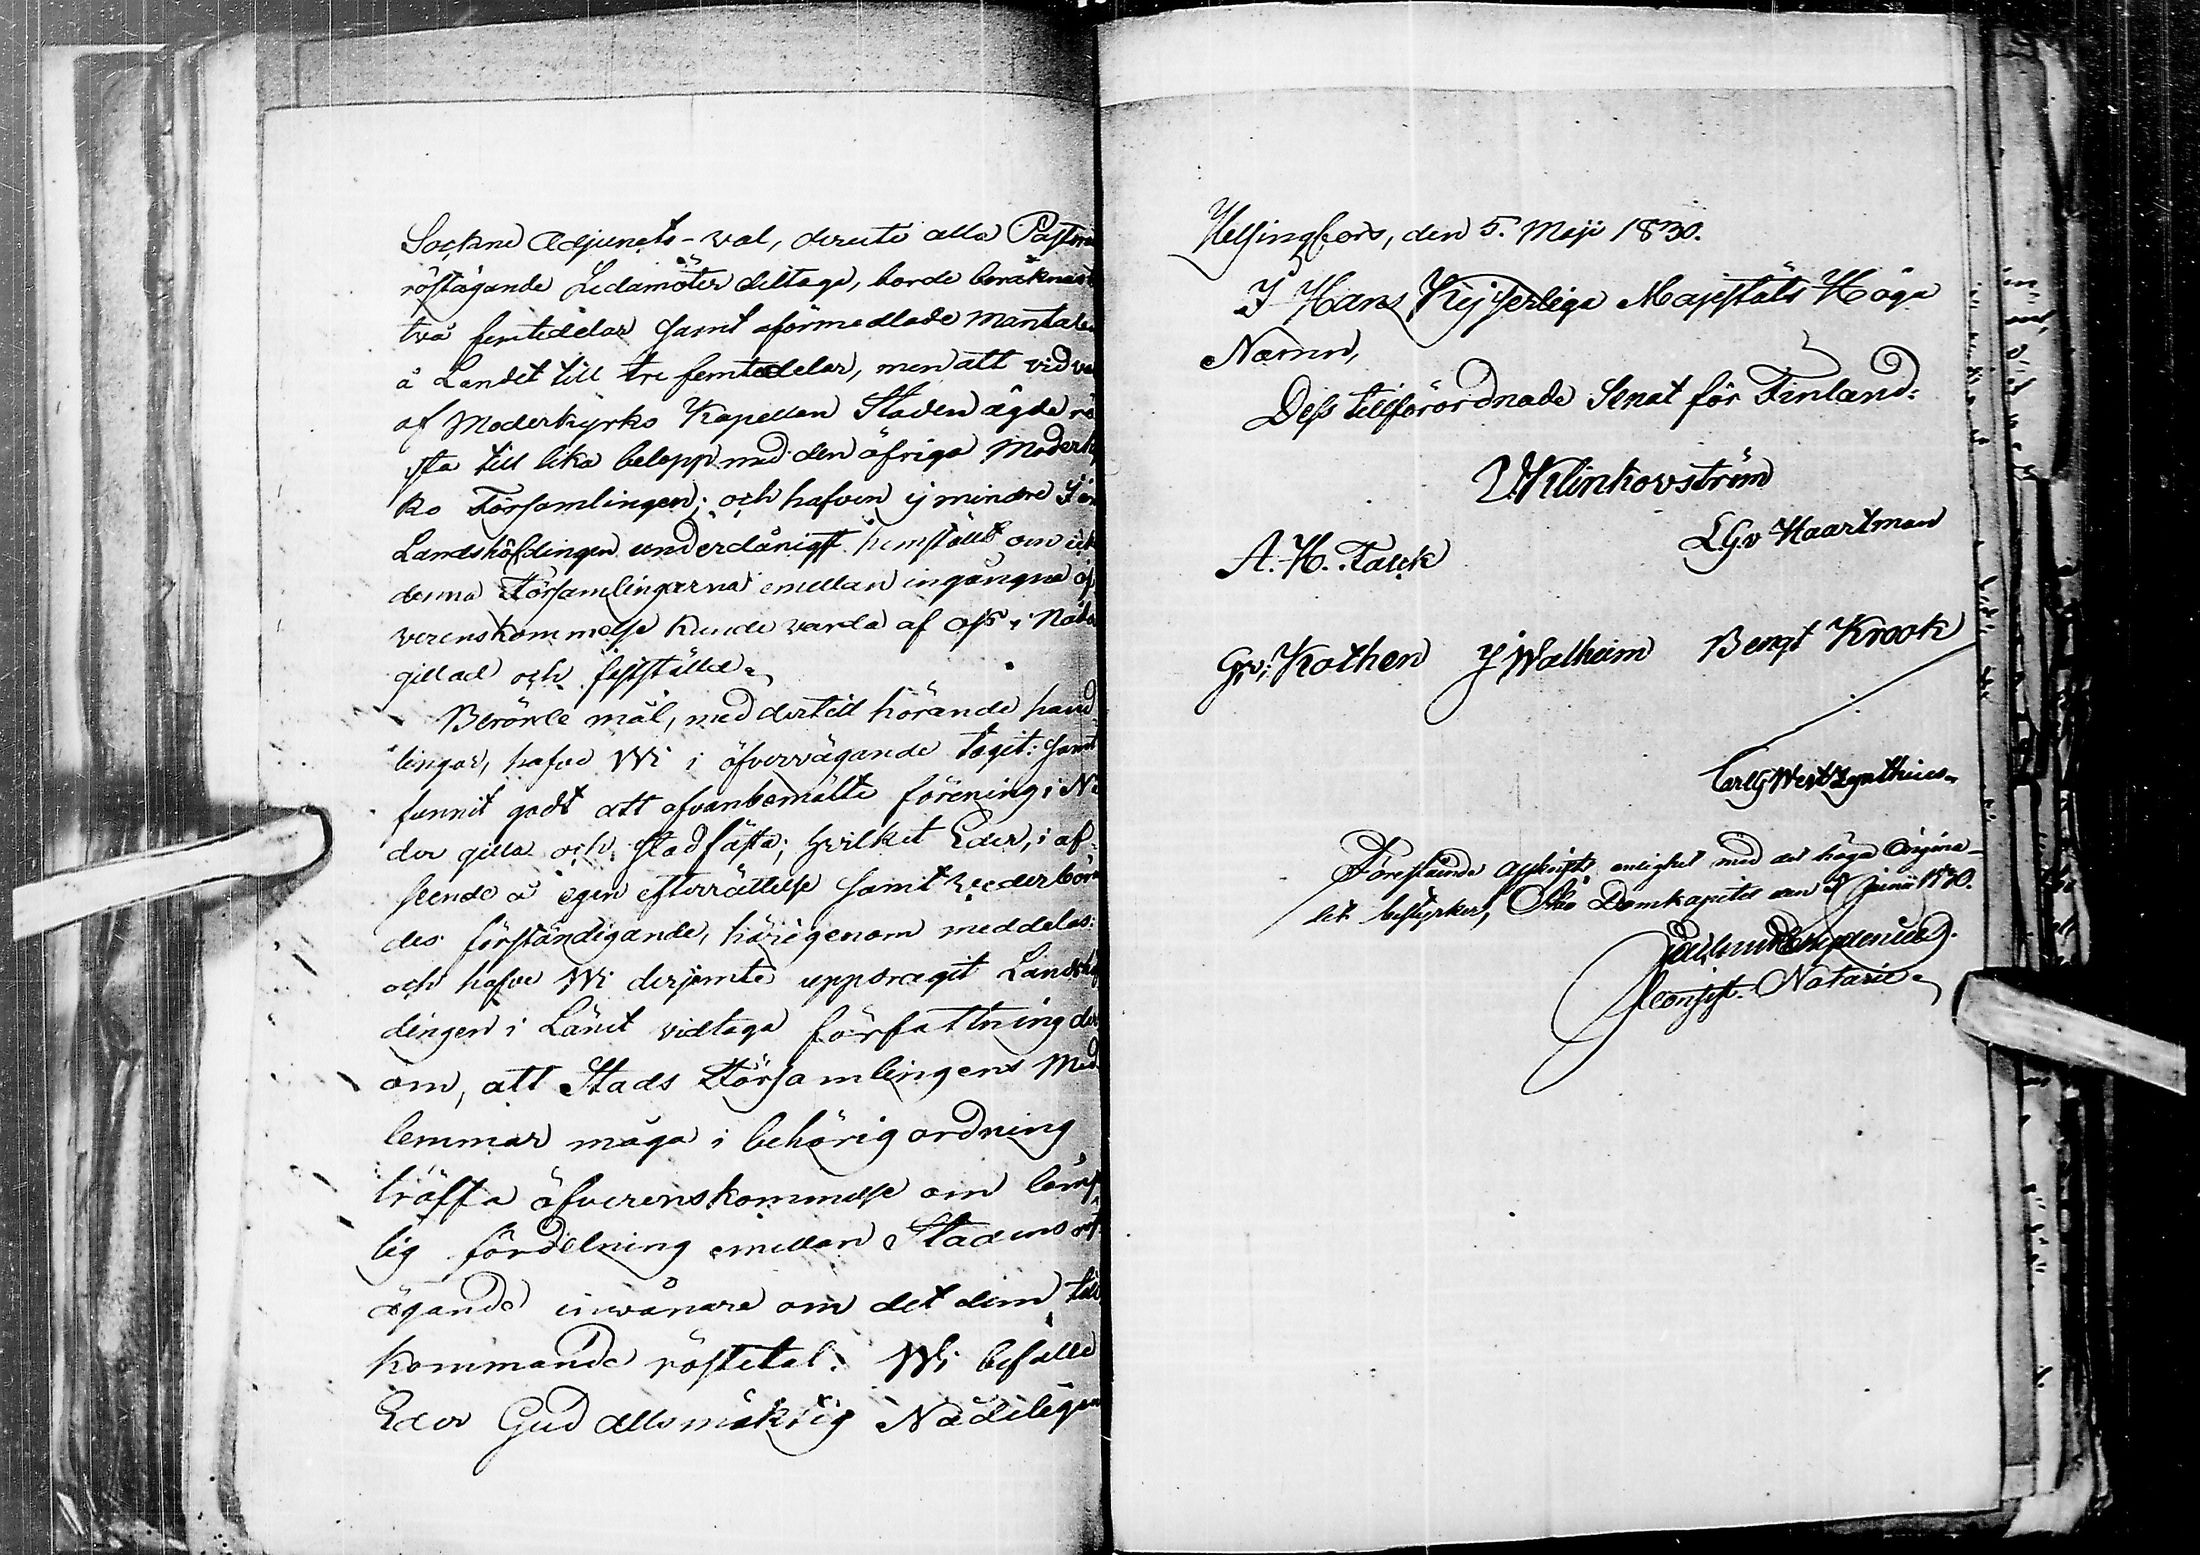 Sockne Adjuncts-val, deruti alla Pastora
röstägande Ledamöter deltaga, borde beräknas t
två femtedelar samt oförmedlade mantalen
å Landet till tre femtedelar, men att vid va
af Moderkyrko Kapellan Staden ägde rö
sta till lika belopp med den öfriga Moderky
ko Församlingen; och hafven ej mindre I än
Landshöfdingen underdånigst hemställt om ick
denna Församlingarna emellan ingångna öf
verenskommelse kunde varda af Oss i Nåde
gillad och fastställd.
Berörde mål, med dertill hörande hand
lingar, hafve Wi i öfvervägande tagit: samt
funnit godt att ofvanbemälte förening i Nå
der gilla och stadfästa; hvilket Eder, i af-
seende å egen efterrättelse samt vederbör
des förständigande, härigenom meddelas:
och hafve Wi derjemte uppdragit Landshöf
dingen i Länet vidtaga författning der
om, att Stads Församlingens Med
lemmar måga i behörig ordning
träffa öfverenskommelse om lämp
lig fördelning emellan Stadens röst
ägande invånare om det dem till
kommande röstetal. Wi befalle
Eder Gud allsmäktig Nådeligen
Helsingfors, den 5. Maji 1830.
I Hans Kejserliga Majestäts Höga
Namn,
Dess tillförordnade Senat för Finland:
Klinkovström
A. H. Falck
L G v Haartman
G. v: Kothen J Walheim Bengt Krook
Carl G Westzynthius
Förestående afskrifts enlighet med det höga Origina-
let bestyrker, Åbo Domkapitel den Junii 1830.
Consist. Notarie